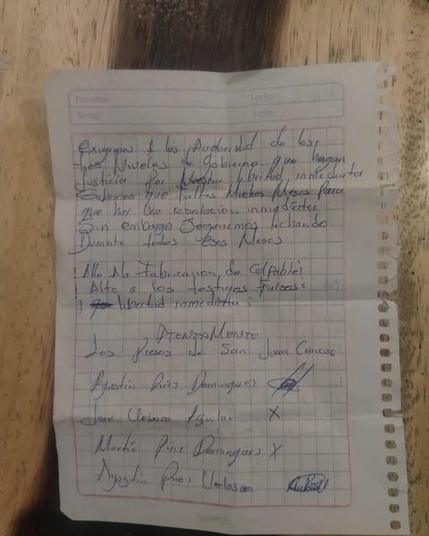 Nombre Fecha
Tema
Exigimos A las Autoridad de los
tres Niveles de Gobierno que hagan
Justicia Por Nuestra libertad inmediata
Sabemos que faltas Muchos Meses Para
que hay Una resolucion inmediata
Sin embargo Seguiremos luchando
Durante todos esos Meses
¡Alto A la Fabricacion de Culpables
¡Alto a los testigos Falsos!
¡ libertad inmediata!
ATENTAMENTE
Los Presos de San Juan Cancuc
Agustin Perez Dominguez
Juan Velasco Aguilar X
Martin Perez Dominguez X
Agustin Perez Velasco